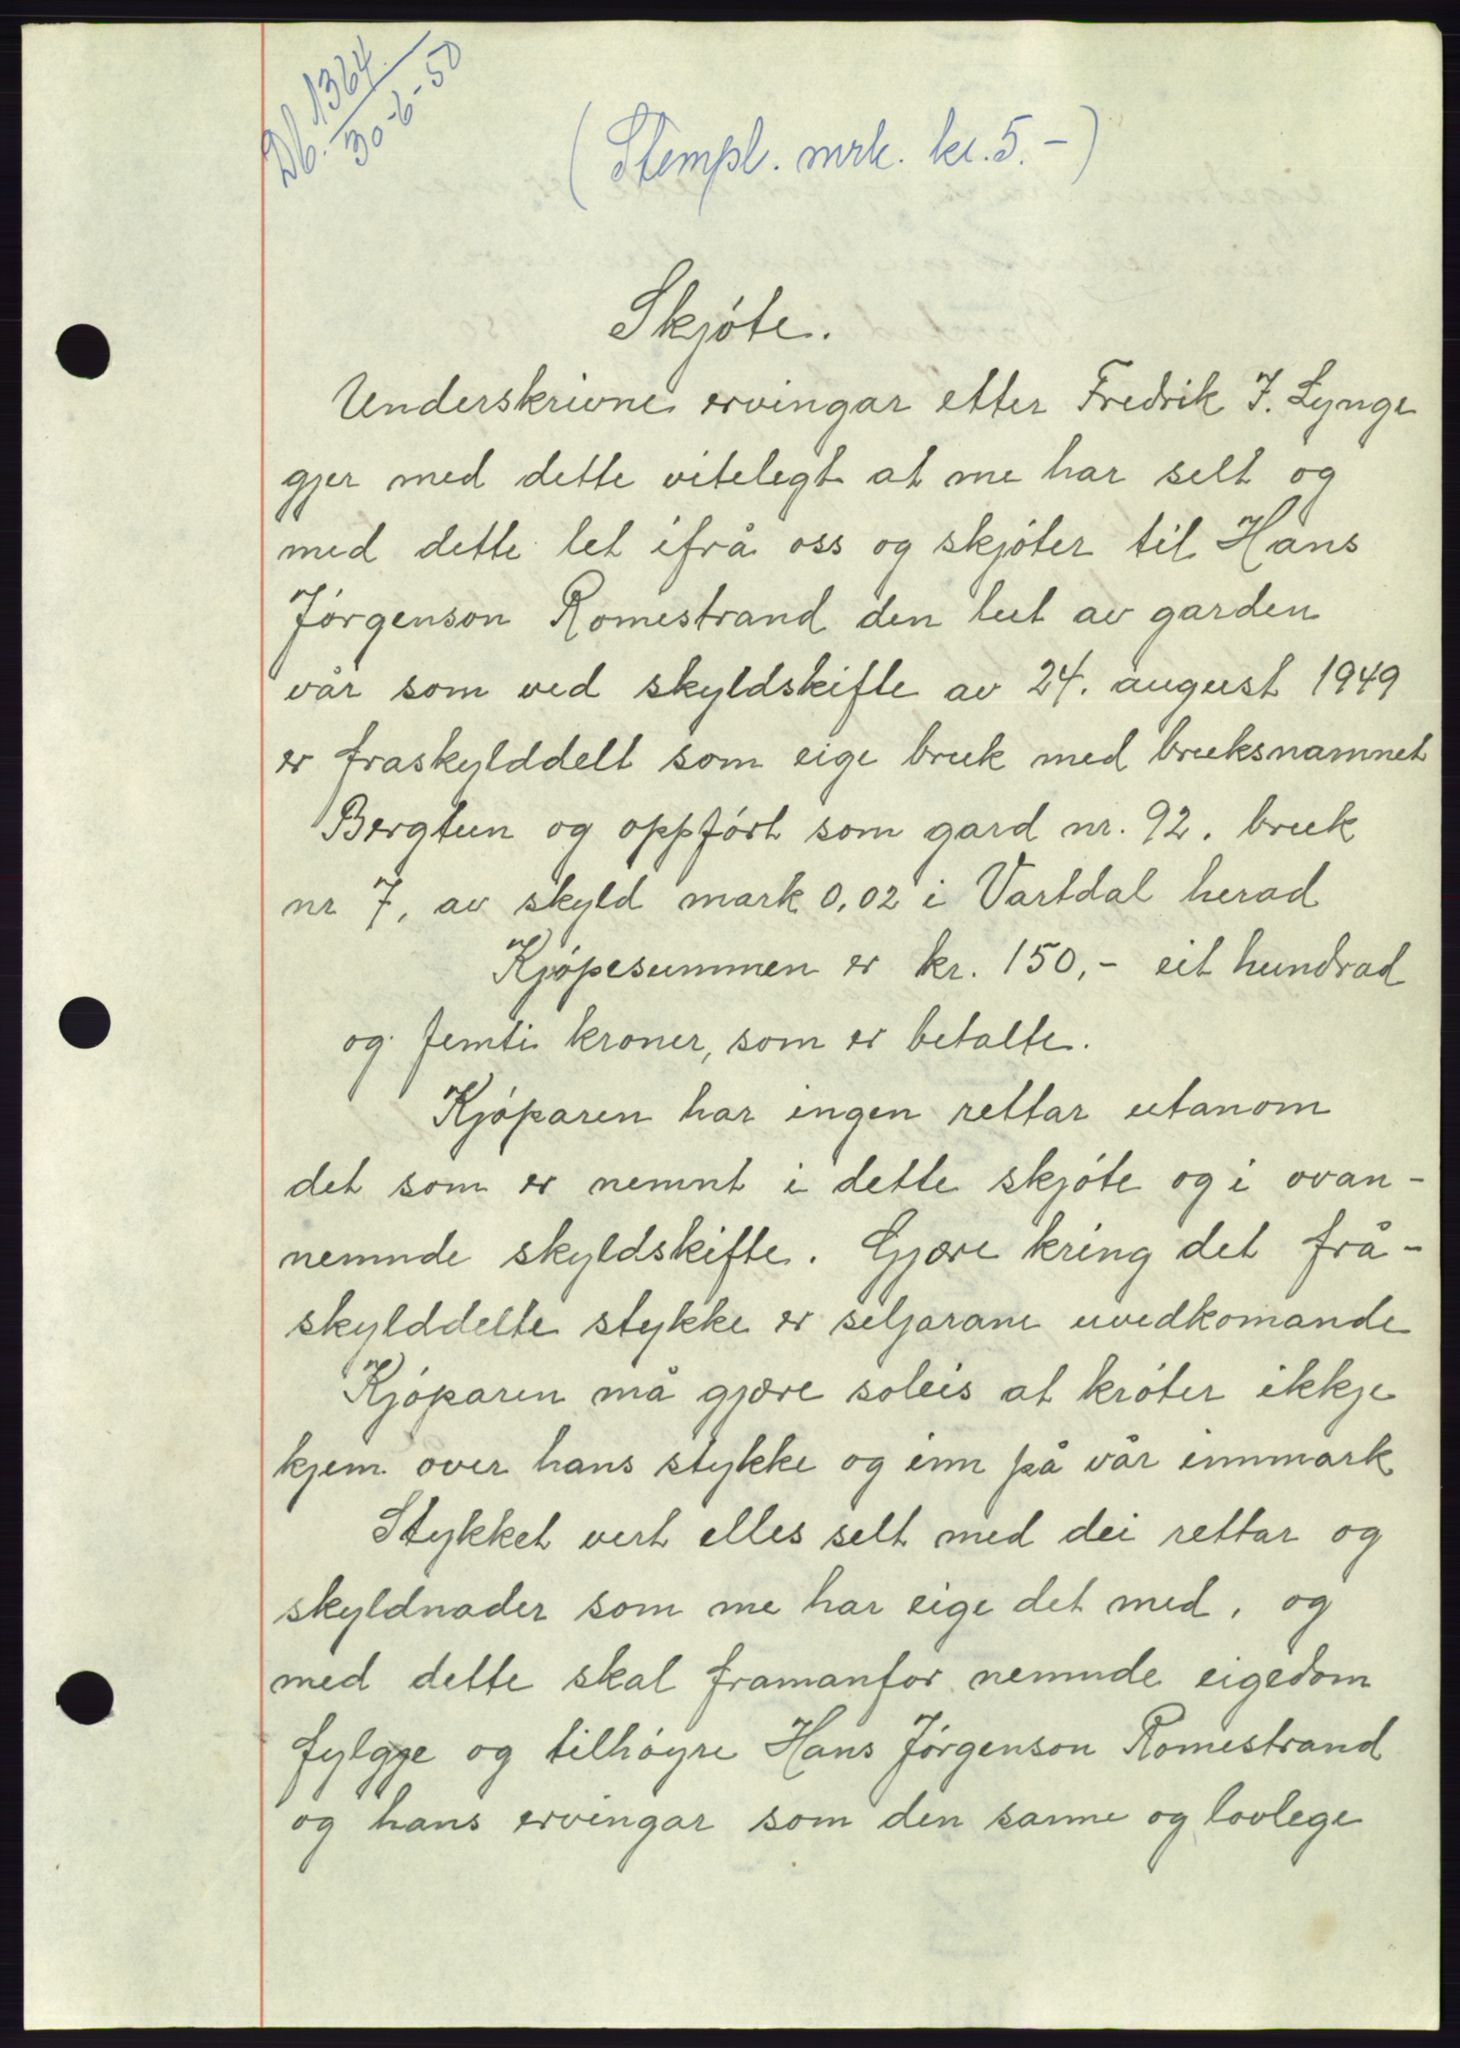 Db. 1364.
30-6-50
(Stempl. mrk. kr. 5.-)
Skjóte.
Underskrivne ervingar etter Fredrik J. Lynge
gjer med dette vitelegt at me har selt og
med dette let ifrå oss og skjóter til Hans
Jórgenson Romestrand den lut av garden
vår som ved skyldskifte av 24. august 1949
er fraskylddelt som eige bruk med bruksnamnet
Bergtun og oppfórt som gard nr. 92. bruk
nr 7, av skyld mark 0,02 i Vartdal herad
Kjópesummen er kr. 150,- eit hundrad
og femti kroner, som er betalte.
Kjóparen har ingen rettar utanom
det som er nemnt i dette skjóte og i ovan-
nemnde skyldskifte. Gjære kring det frå-
skylddelte stykke er seljarane uvedkomande
Kjóparen må gjære soleis at króter ikkje
kjem over hans stykke og inn på vår innmark
Stykket vert elles selt med dei rettar og
skyldnader som me har eige det med, og
med dette skal framanfor nemnde eigedom
fylgje og tilhóyre Hans Jórgenson Romestrand
og hans ervingar som den sanne og lovlege